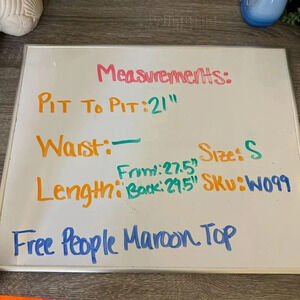 Measurements:
Pit To Pit: 21"
Waist: —
Size: S
Length: Front: 27.5"
Back: 29.5"
Sku: W099
Free People Maroon Top